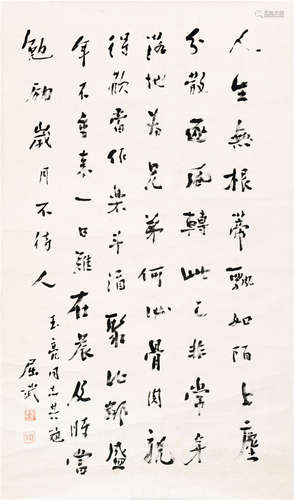 人生無根蒂飄如陌上塵
分散逐風轉此已非常身
落地為兄弟何必骨肉親
得歡當作樂斗酒聚比鄰盛
年不重來一日難在晨及時當
勉勵歲月不待人
玉亮同志共勉
屈武